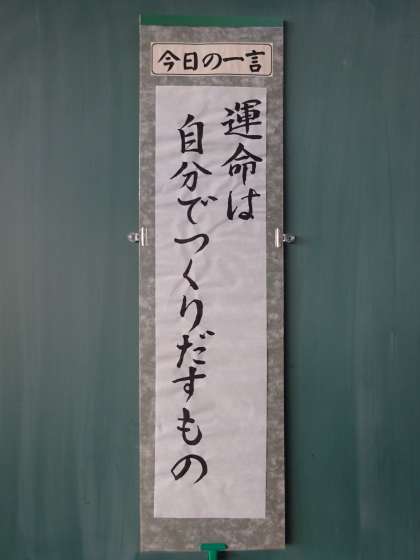 今日の一言
運命は
自分でつくりだすもの